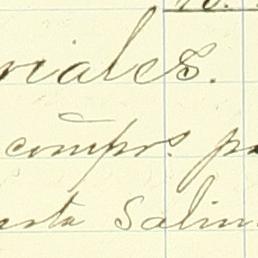 riales.
comprs. pa
sta Salin